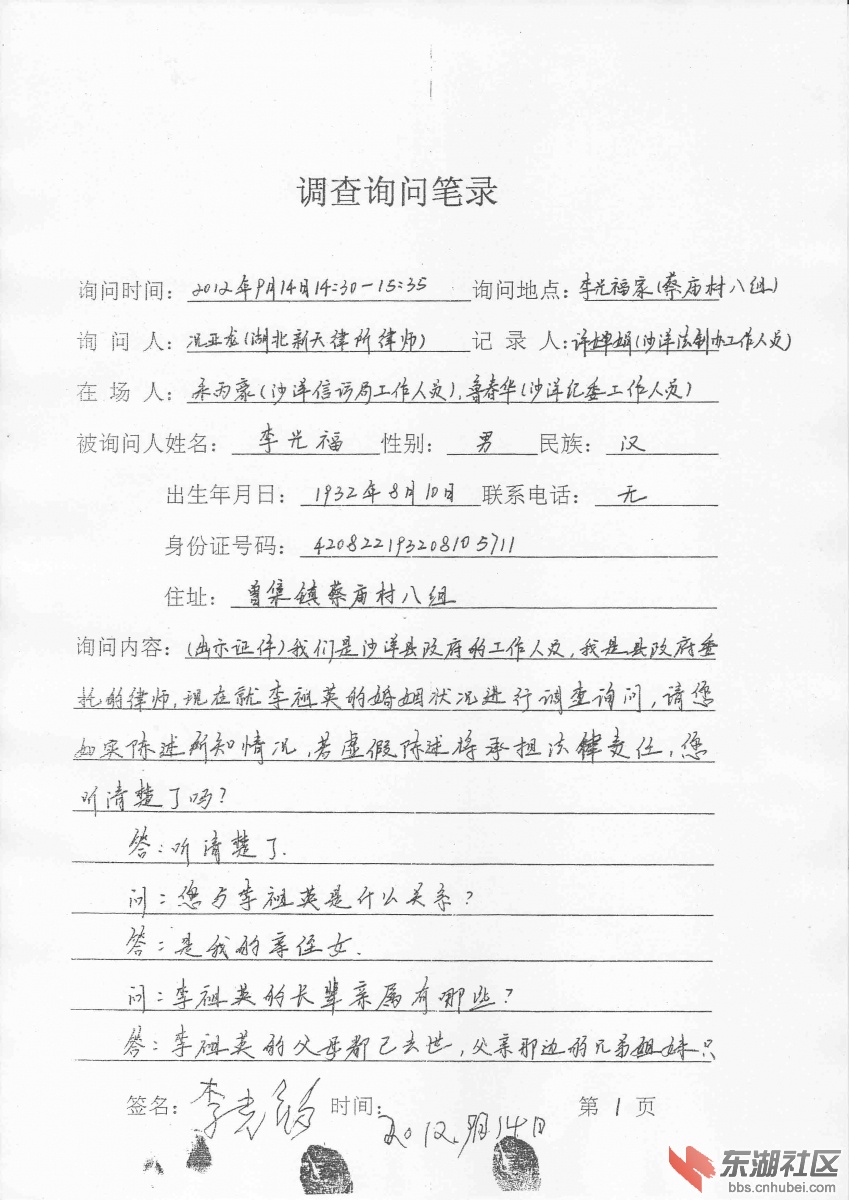 调查询问笔录
询问时间：2012年9月14日14:30-15:35 询问地点：李光福家(蔡庙村八组)
询问人：况亚龙(湖北新天律所律师) 记录人：许婵娟(沙洋法制办工作人员)
在场人：(沙洋信访局工作人员)，鲁春华(沙洋纪委工作人员)
被询问人姓名：李光福 性别：男 民族：汉
出生年月日：1932年8月10日 联系电话：无
身份证号码：420822193208105711
住址：曾集镇蔡庙村八组
询问内容：(出示证件)我们是沙洋县政府的工作人员，我是县政府委
托的律师，现在就李祖英的婚姻状况进行调查询问，请您
如实陈述所知情况，若虚假陈述将承担法律责任，您
听清楚了吗？
答：听清楚了.
问：您与李祖英是什么关系？
答：是我的亲侄女.
问：李祖英的长辈亲属有哪些？
答：李祖英的父母都已去世，父亲那边的兄弟姐妹只
签名：李光福 时间：2012.9月14日 第1页
东湖社区
bbs.cnhubei.com